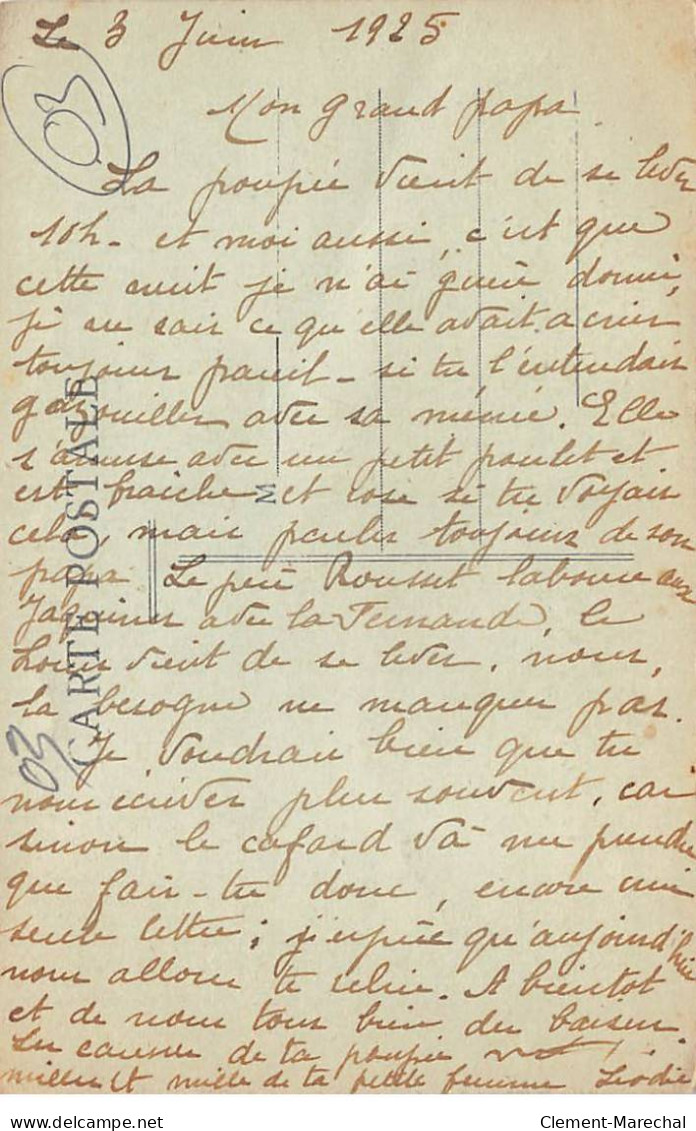 Le 3 Juin 1925
03
Mon grand papa
La poupée vient de se lever
10h - et moi aussi, c'est que
cette nuit je n'ai guère dormi,
je ne sais ce qu'elle avait a crier
toujours pareil - si tu l'entendais
gazouiller avec sa mémé. Elle
s'amuse avec un petit poulet et
est fraiche et rose si tu voyais
cela, mais parler toujours de son
papa Le père Rousset laboure aux
Jaquines avec la Fernande, le
Louis vient de se lever, nous,
la besogne ne manque pas.
Je voudrais bien que tu
nous écrives plus souvent, car
sinon le cafard va me prendre
que fais-tu donc, encore une
seule lettre; j'espère qu'aujourd'hui
nous allons te relire. A bientôt
et de nous tous bien des baisers.
Les caresses de ta poupée
milles et mille de ta petite femme
CARTE POSTALE
M
03
Clement-Marechal